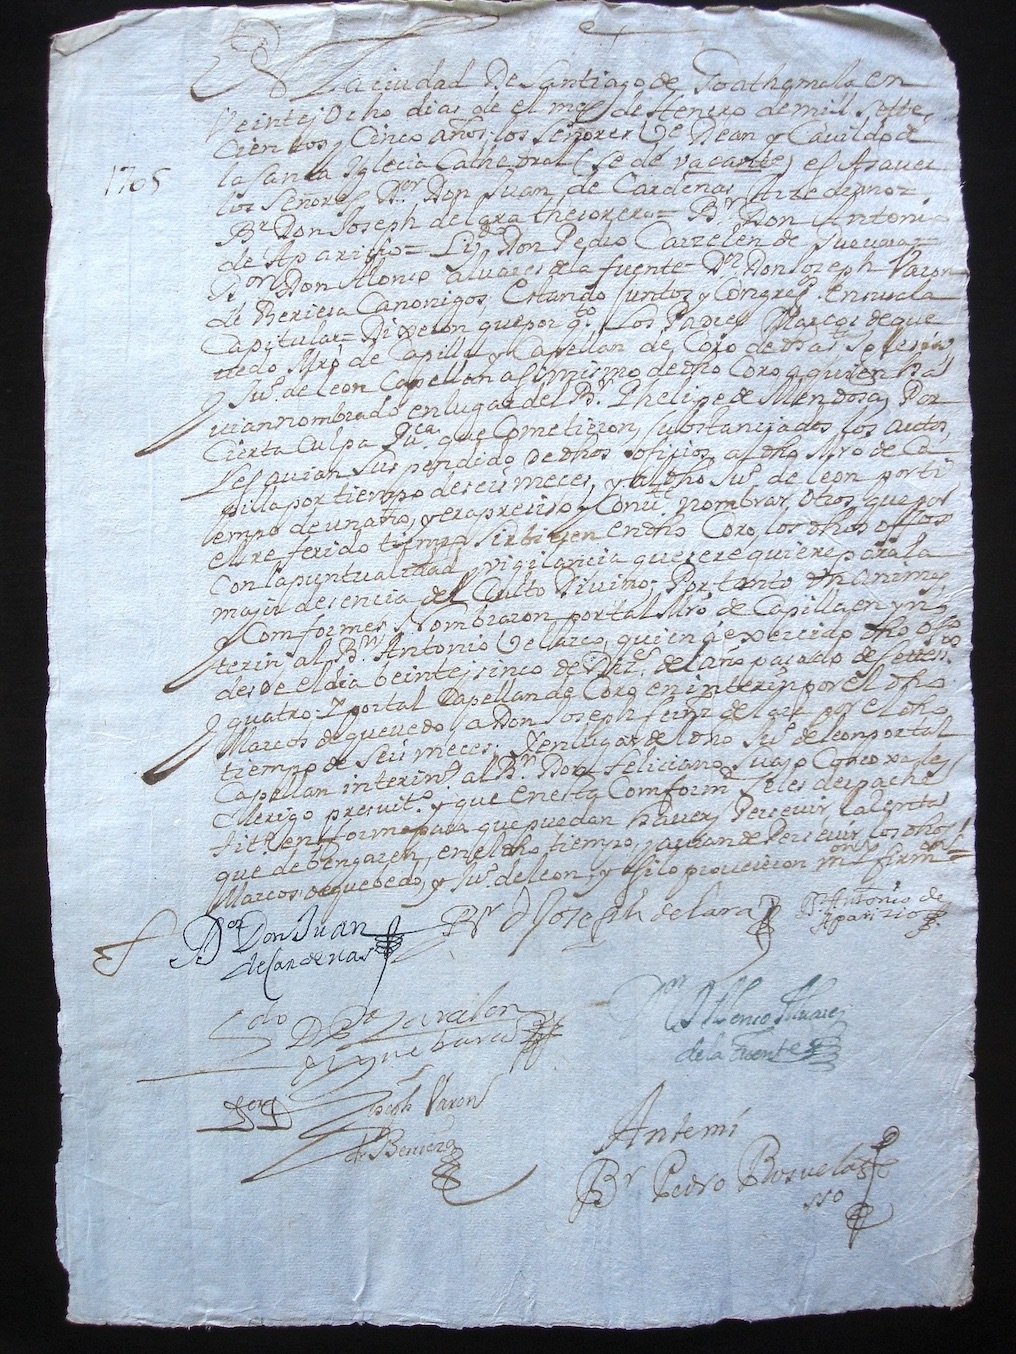 En La ciudad De Santiago de Goathemala en
Veinte y Ocho dias de el mes de Henero de mil sette
cientos, y Cinco años, los Señores Ve Dean y Cavildo de
la Santa Yglecia Cathedral (Se de vacante) es Asaver
1705
los Señores Dor Don Juan de Cardenas Arzedeano=
Br Don Joseph de Lara thesorero= Br Don Antonio
de Aparissio= Ldo Don Pedro Carrelen de Guevara=
Dor Don Alonso Alvares de la fuente= Dor Don Joseph Varon
de Berieza Canonigos, Estando Juntos y Congregs en su sala
Capitular= Dixeron que por qto Los Padres Marcos de que
vedo Mro de Capilla y Capellan de Coro de dha Sta Yglesia
Ju. de leon Capellan assimismo de dho Coro a quien ha
vian nombrado en lugar del Br Phelipe de Mendosa, Por
Cierta Culpa que Cometieron, Substanciados los autos,
Les avian Suspendido de dhos ofisios, a dho Mro de Ca
pilla por tiempo de seis meces, y al dho Ju. de leon por ti
empo de un año, y era presiso y Conute nombrar otros que por
el referido tiempo Sirbiesen en dho Coro, los dhos offios
Con la puntualidad y vigilancia que se requiere para la
maior desencia del Culto Divino; Por tanto Unanimes
y Comformes Nombraron por tal Mro de Capilla en yn
terin al Br Antonio Velasco, quien a exercido dho offo
desde el dia beinte y sinco de Dize del año pasado de settes
quatro. Y por tal Capellan de Coro en interin por el dho
Marcos de quevedo a Don Joseph de Lara por el dho
tiempo de Seis meces. Y en lugar del dho Ju. de leon por tal
Capellan interino al Br Don Feliciano
Clerigo presvito. y que en esta Comformd Se les despache
titto en forma para que puedan haver y Persevir, la renta
que debengaren, en el dho tiempo, y avian de Persevir los dhos
Marcos de quebedo, y Ju. de leon y asi lo proveieron mon y firmon=
Dor Don Juan
de Cardenas
Br D Joseph de Lara
Br Antonio de
Aparizio
Ldo D Po Carrelen
de guebara
Dor Alonco Alvares
de la Fuente
Dor D Joseph Varon
de Berieza
Antemi
Br Pedro
sso